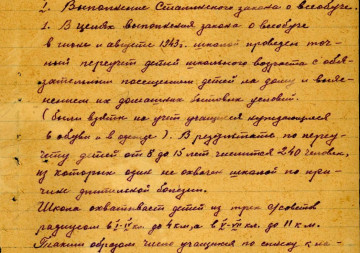 I. Выполнение Сталинского закона о всеобуче.
1. В целях выполнения закона о всеобуче
в июле и августе 1943г. школой проведен точ-
ный переучет детей школьного возраста с обя-
зательным посещением детей на дому и выяс-
нением их домашних бытовых условий.
(были взяты на учет учащиеся нуждающиеся
в обуви и в одежде). В результате по переу-
чету детей от 8 до 15 лет числится 240 человек,
из которых один не охвачен школой по при-
чине длительной болезни.
Школа охватывает детей из трех с/советов
радиусом в I-IV кл. до 4 км, а в V-VII кл. до 11 км.
Таким образом число учащихся по списку к на-